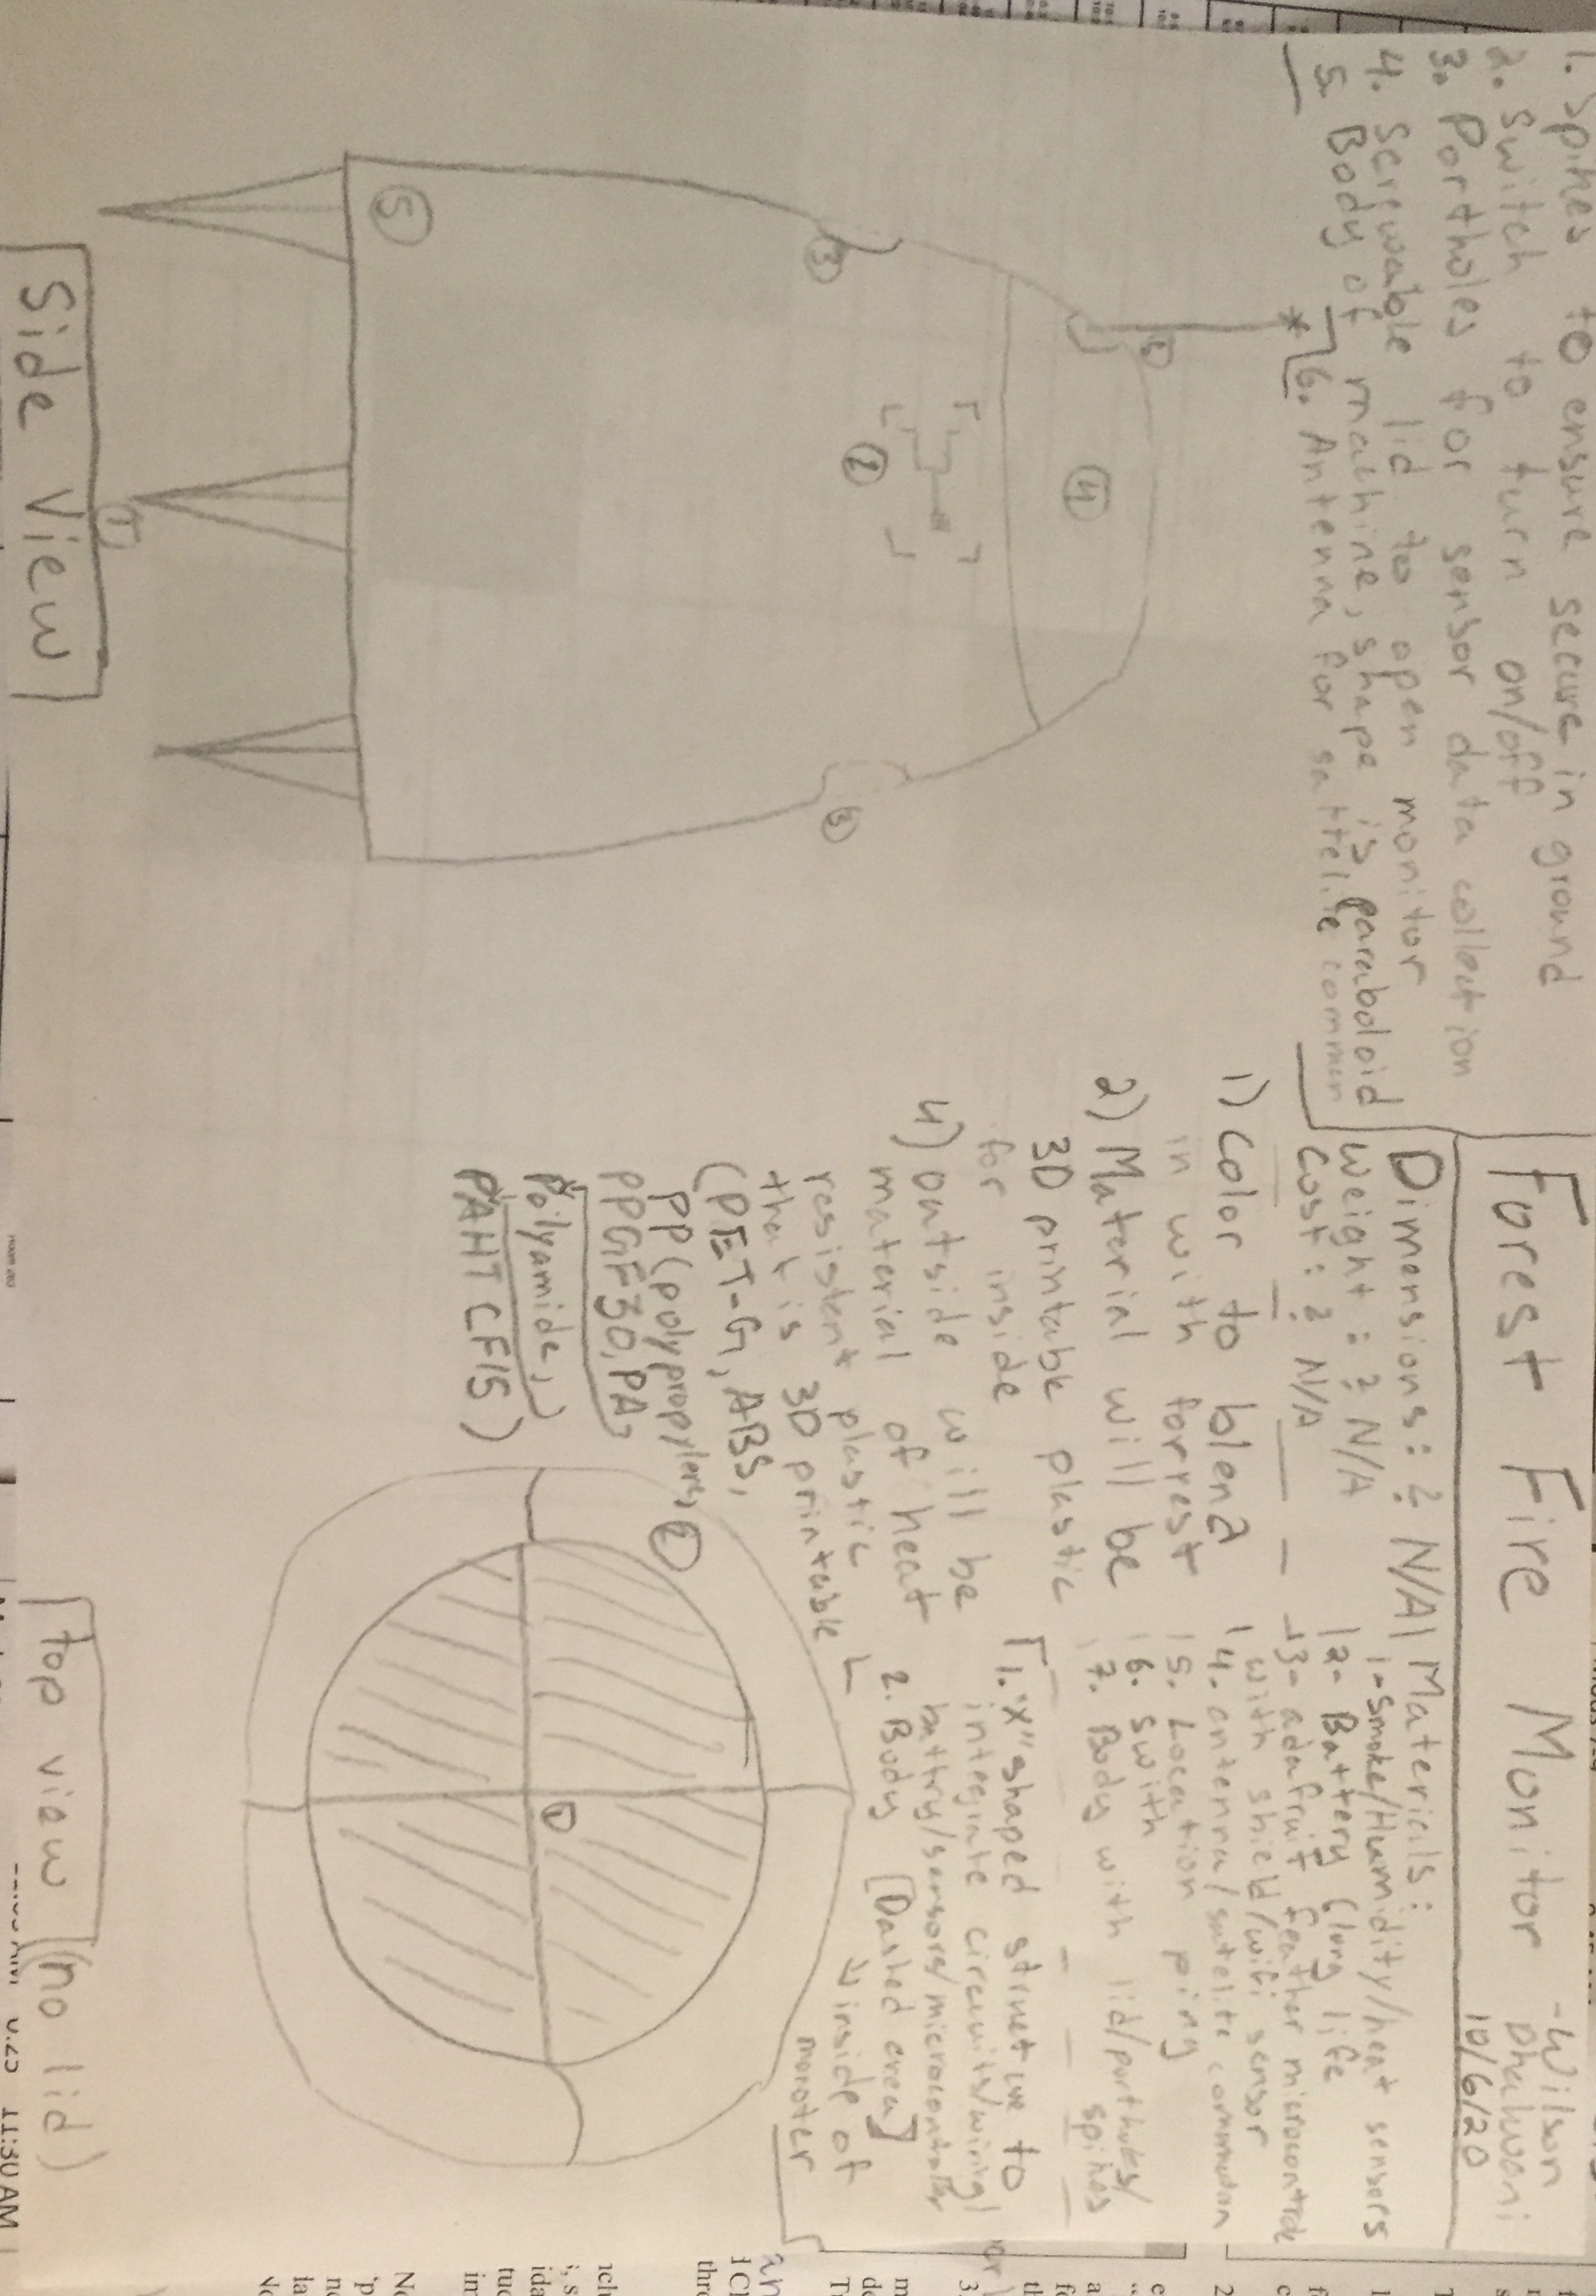 1. Spikes to ensure secure in ground
2. Switch to turn on/off
3. Portholes for sensor data collection
4. Screwable lid to open monitor
5. Body of machine, shape is paraboloid
6. Antenna for sattelite commun
Forest Fire Monitor
-Wilson
Dhalwani
10/6/20
Dimensions: ? N/A
Weight: ? N/A
Cost: ? N/A
Materials:
1-Smoke/Humidity/heat sensors
2- Battery (long life
3- adafruit feather microcontrole
with shield/wifi sensor
4. antenna/satelite
5. Location ping
6. swith
7. Body with lid/portholes/
spikes
1) Color to blend
in with forrest
2) Material will be
3D printable plastic
for inside
4) outside will be
material of heat
resistent plastic
that is 3D printable
(PET-G, ABS,
PP (polypropylene,
PPGF30, PA,
Polyamide,)
PAHT CF15)
1. "X" shaped structure to
integrate circuits/wiring/
battry/sensors/microcontroller
2. Body [Dashed area]
inside of
monoter
6
4
2
3
3
5
1
Side View
2
1
top view (no lid)
11:30 AM